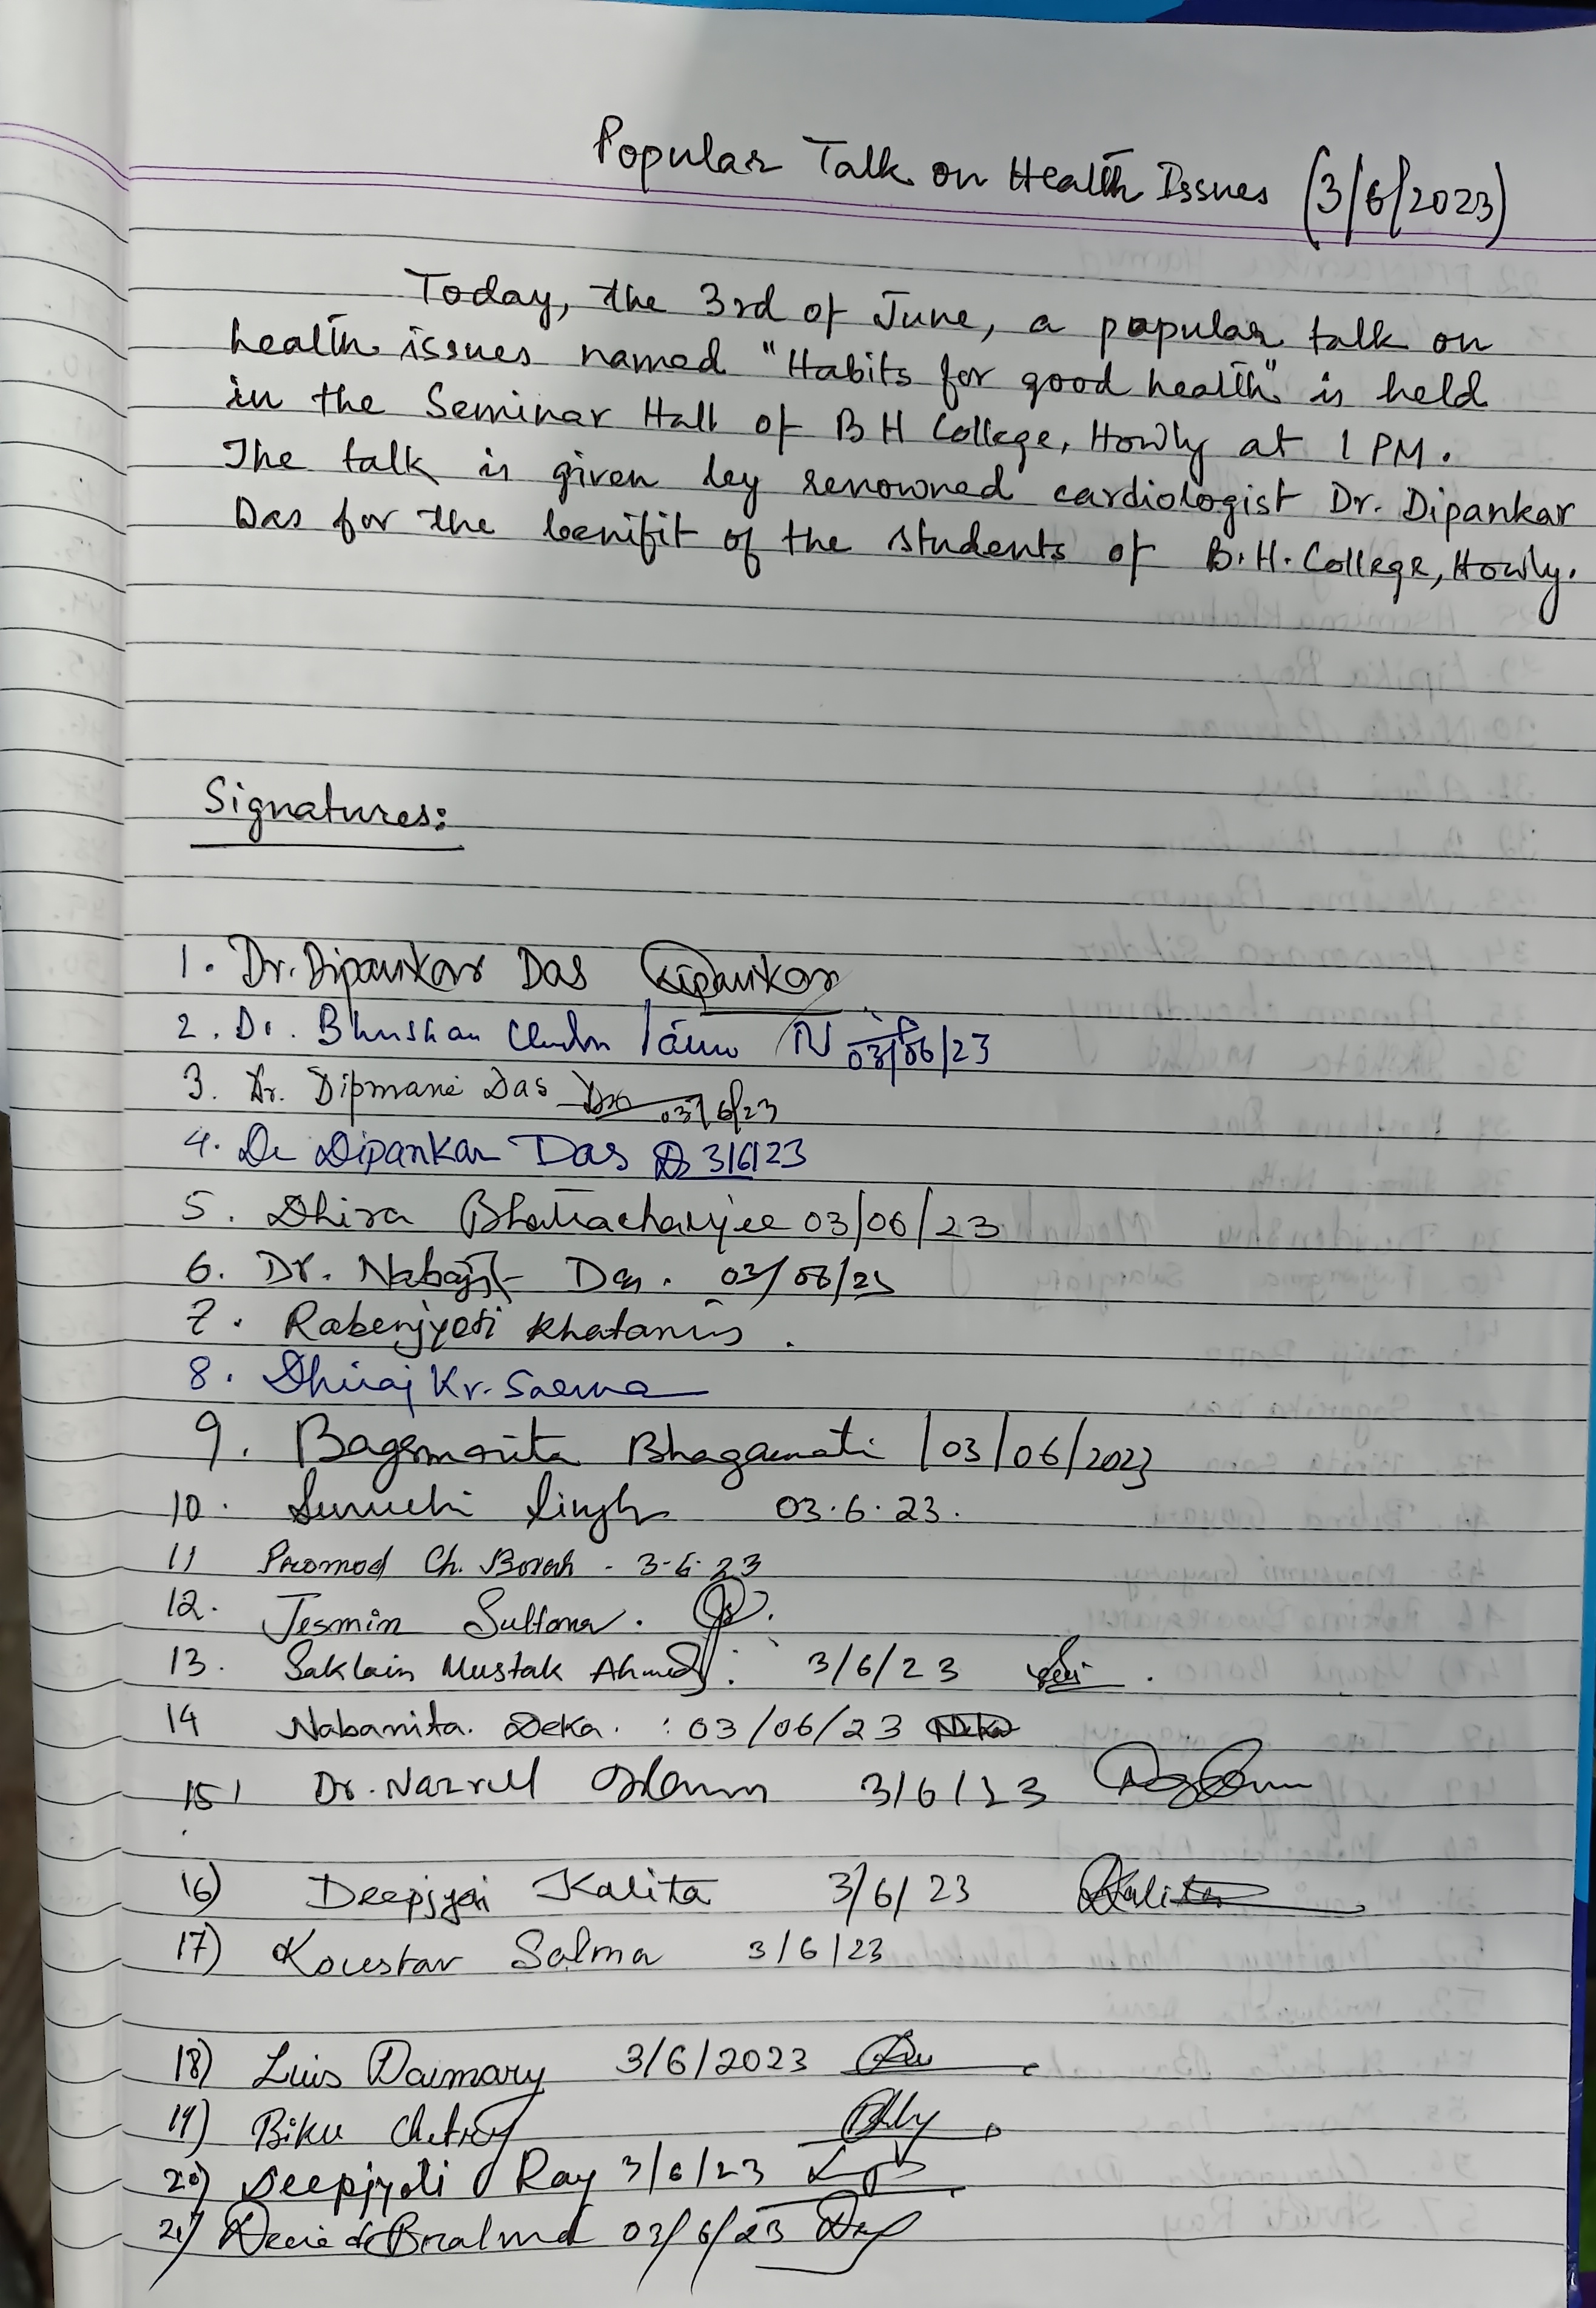 Popular Talk on Health Issues (3/6/2023)
Today, the 3rd of June, a popular talk on
health issues named "Habits for good health" is held
in the Seminar Hall of B H College, Howly at 1 PM.
The talk is given by renowned cardiologist Dr. Dipankar
Das for the benifit of the students of B.H. College, Howly.
Signatures:
1. Dr. Dipankar Das Dipankar
2. Dr. Bhushan 03/06/23
3. Dr. Dipmani Das 03/6/23
4. Dr Dipankar Das 3/6/23
5. Dhira Bhattacharjee 03/06/23
6. Dr. Nabajit Das. 03/06/23
7. Khatanis.
8. Dhiraj Kr. Sarma
9. Bhagawati /03/06/2023
10. Suruchi Singh 03.6.23.
11 Promod Ch. Borah - 3-6-23
12. Jesmin Sultana.
13. Saklain Mustak Ahmed. 3/6/23
14 Nabanita. Deka. : 03/06/23 NDeka
15) Dr. Nazrul Islam 3/6/23
16) Deepjyoti Kalita 3/6/23 DKalita
17) Koustav Salma 3/6/23
18) Luis Daimary 3/6/2023
19) Biku Chetry
20) Deepjyoti Ray 3/6/23
21) 03/6/23